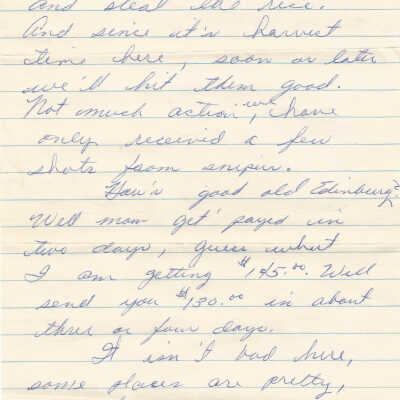 and steal the rice.
And since it's harvest
time here, soon or later
we'll hit them good.
Not much action, we have
only received a few
shots from sniper.
How's good old Edinburg?
Well mom get payed in
two days, guess what
I am getting $145.00. Will
send you $130.00 in about
three or four days.
It isn't bad here,
some places are pretty,